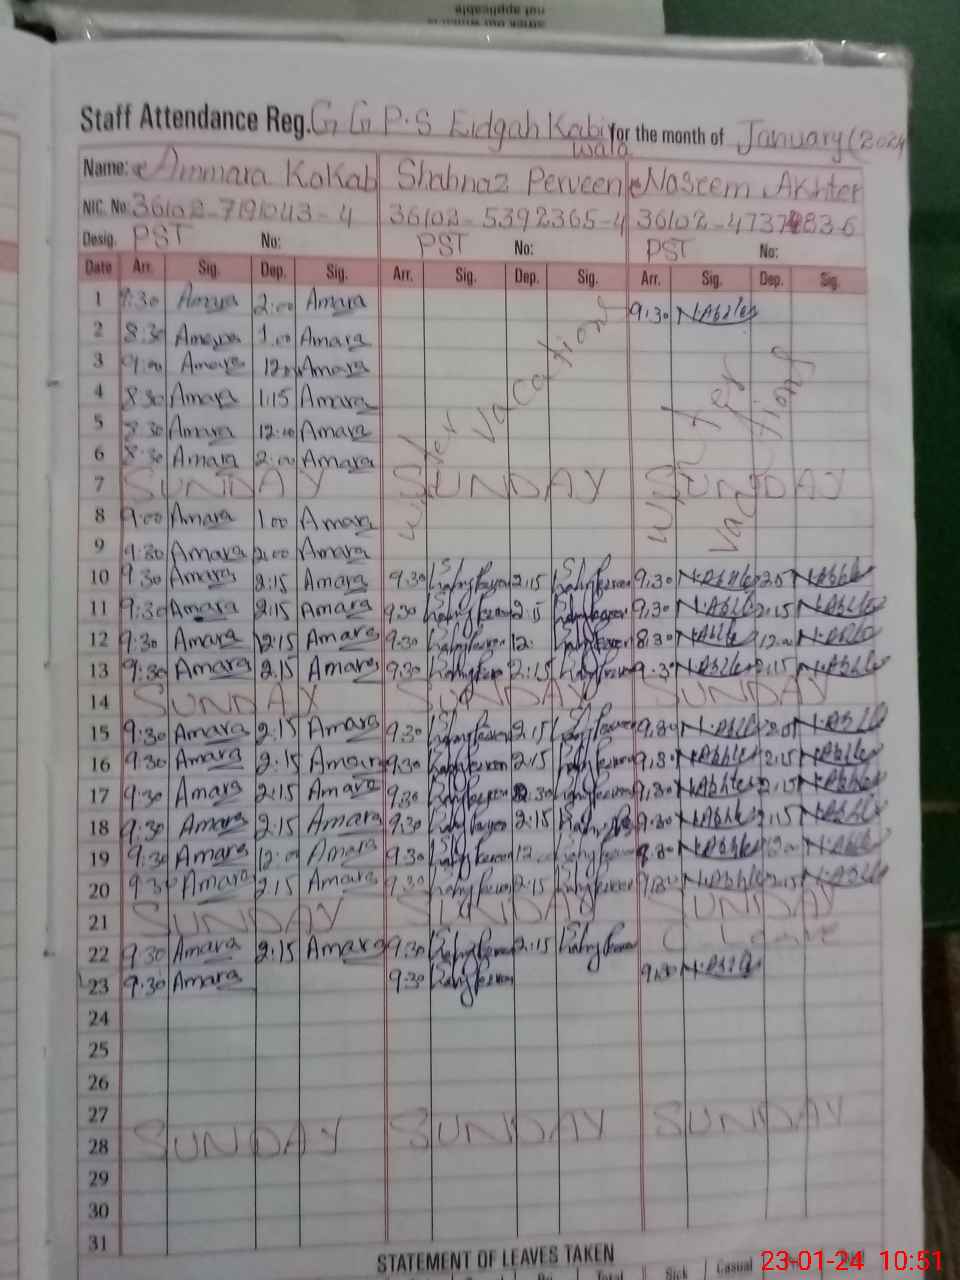 not applicable
Staff Attendance Reg. G G P.S Eidgah Kabir wala for the month of January (2024
Name: Ammara Kokab Shahnaz Perveen Naseem Akhter
NIC. No. 36102-7191043-4 36102-5392365-4 36102-4737483-6
Desig. PST No: PST No: PST No:
Date Arr. Sig. Dep. Sig. Arr. Sig. Dep. Sig. Arr. Sig. Dep. Sig.
1 9:30 Amara 2:00 Amara 9:30 N.Akhter
2 8:30 Amara 1:00 Amara
3 9:00 Amara Amara
4 8:30 Amara 1:15 Amara
5 8:30 Amara Amara
6 8:30 Amara 2:00 Amara
Winter Vacation Winter Vacations
7 SUNDAY SUNDAY SUNDAY
8 9:00 Amara 1:00 Amara
9 9:30 Amara 2:00 Amara
10 9:30 Amara 2:15 Amara 9:30 2:15 9:30 N.Akhter N.Akhter
11 9:30 Amara 2:15 Amara 9:30 9:30 N.Akhter 2:15 N.Akhter
12 9:30 Amara 12:15 Amara 9:30 12: 8:30 N.Akhter 12:00 N.Akhter
13 9:30 Amara 2:15 Amara 9:30 2:15 9:30 N.Akhter 2:15 N.Akhter
14 SUNDAY SUNDAY SUNDAY
15 9:30 Amara 2:15 Amara 9:30 2:15 9:30 N.Akhter N.Akhter
16 9:30 Amara 2:15 Amara 9:30 2:15 9:30 N.Akhter 2:15 N.Akhter
17 9:30 Amara 2:15 Amara 9:30 9:30 N.Akhter 2:15 N.Akhter
18 9:30 Amara 2:15 Amara 9:30 2:15 9:30 N.Akhter 2:15 N.Akhter
19 9:30 Amara 12:00 Amara 9:30 12:00 8:30 N.Akhter N.Akhter
20 9:30 Amara 2:15 Amara 9:30 2:15 9:30 N.Akhter 2:15 N.Akhter
21 SUNDAY SUNDAY SUNDAY
22 9:30 Amara 2:15 Amara 9:30 2:15 C-Leave
23 9:30 Amara 9:30 9:30 N.Akhter
24
25
26
27
28 SUNDAY SUNDAY SUNDAY
29
30
31
STATEMENT OF LEAVES TAKEN
Total Sick Casual
23-01-24 10:51